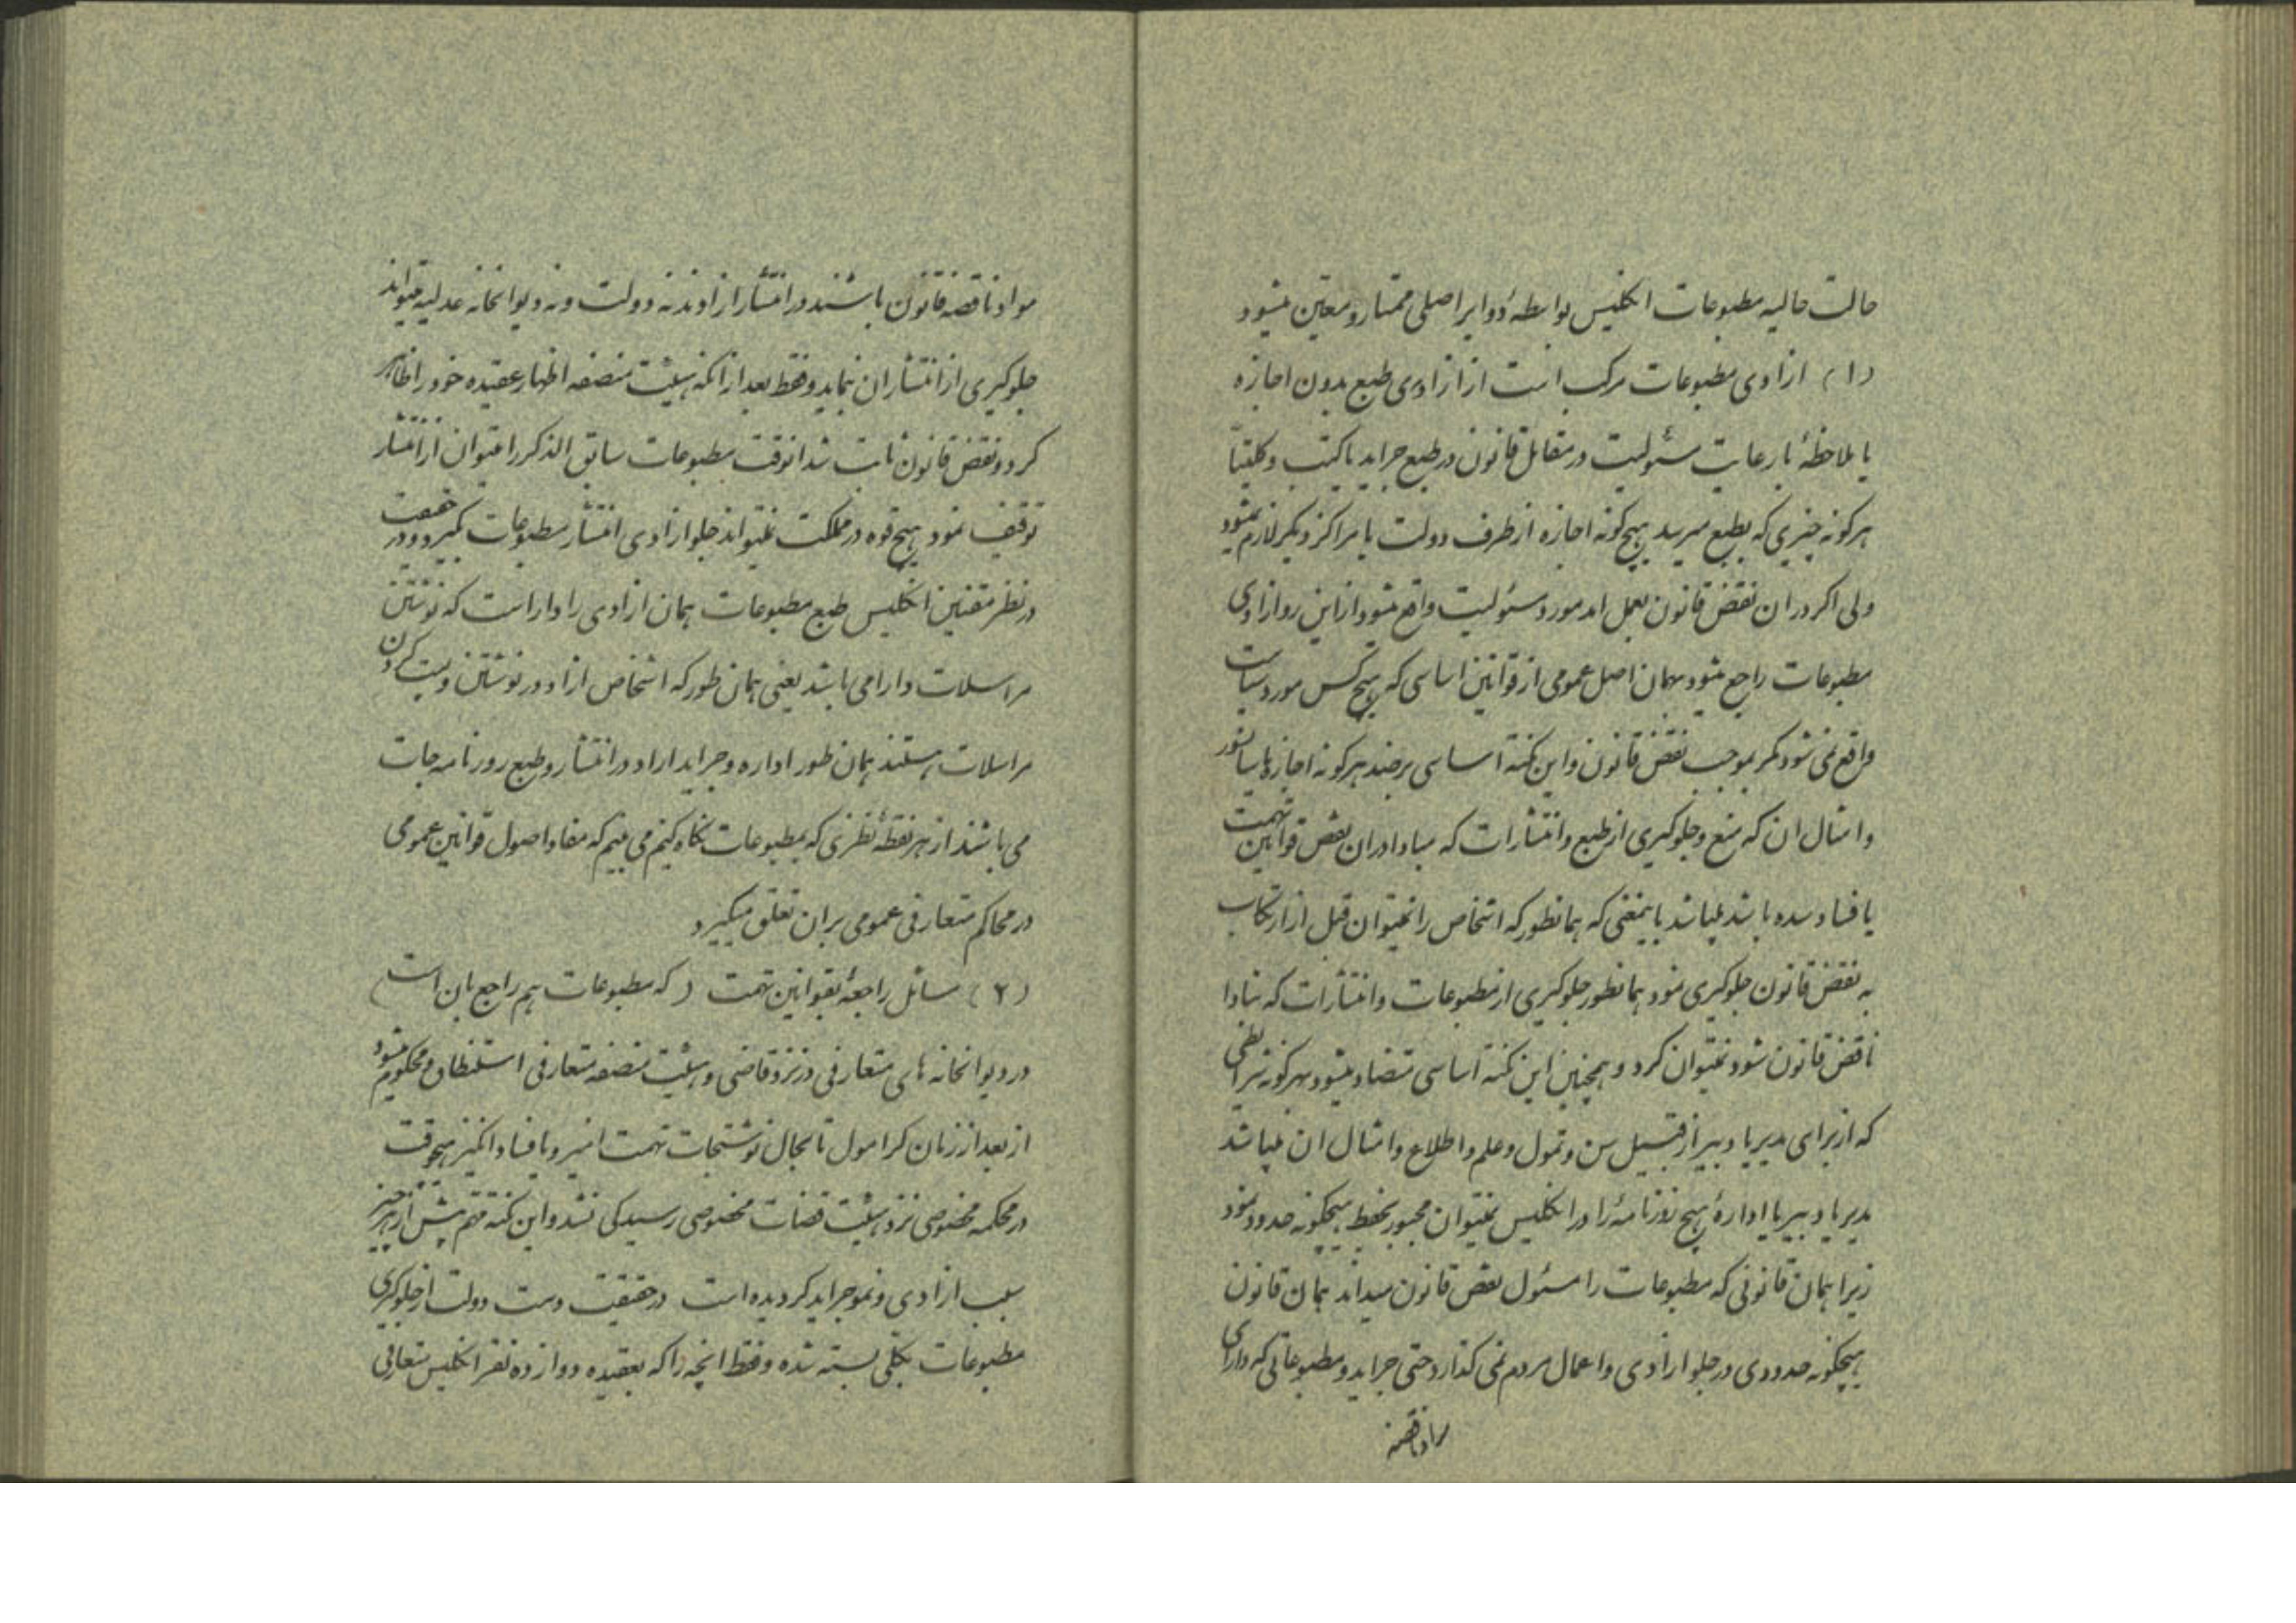 حالت حالیه مطبوعات انکلیس بواسطهٔ دوایر اصلی ممتاز و معین میشود
(۱) ازادی مطبوعات مرکب است از ازادی طبع بدون اجازه
یا ملاحظهٔ با رعایت مسئولیت در مقابل قانون در طبع جراید یا کتب و کلیتاً
هرکونه چیزی که بطبع میرسد هیچ کونه اجازه از طرف دولت یا مراکز دیکر لازم نمیشود
ولی اکر در ان نقض قانون بعمل اید مورد مسئولیت واقع میشود از این رو ازادی
مطبوعات راجع میشود بهمان اصل عمومی از قوانین اساسی که هیچ کس مورد سیاست
واقع نمی شود مکر بموجب نقض قانون و این نکتهٔ اساسی برضد هرکونه اجازه یا سانسور
و امثال ان که منع و جلوکیری از طبع و انتشارات که مبادا در ان نقض قوانین تهمت
یا فساد شده باشد میباشد باینمعنی که همانطور که اشخاص را نمیتوان قبل از ارتکاب
به نقض قانون جلوکیری نمود همانطور جلوکیری از مطبوعات و انتشارات که مبادا
ناقض قانون شود نمیتوان کرد و همچنین این نکتهٔ اساسی متضاد میشود بهرکونه شرایطی
که از برای مدیر یا دبیر از قبیل سن و تمول و علم و اطلاع و امثال ان میباشد
مدیر یا دبیر یا ادارهٔ هیچ روزنامهٔ را در انکلیس نمیتوان مجبور بحفظ هیچکونه حدود نمود
زیرا همان قانونی که مطبوعات را مسئول نقض قانون میداند همان قانون
هیچکونه حدودی در جلو ازادی و اعمال مردم نمی کذارد حتی جراید و مطبوعاتی که دارای
مواد ناقصه
مواد ناقصه قانون باشند در انتشار ازادند نه دولت و نه دیوانخانه عدلیه میتواند
جلوکیری از انتشار ان نماید و فقط بعد از انکه هیئت منصفه اظهار عقیده خود را ظاهر
کرد و نقض قانون ثابت شد انوقت مطبوعات سابق الذکر را میتوان از انتشار
توقیف نمود هیچ قوه در مملکت نمیتواند جلو ازادی انتشار مطبوعات بکیرد و در حقیقت
در نظر مقننین انکلیس طبع مطبوعات همان ازادی را دارا است که نوشتن
مراسلات دارا می باشد یعنی همان طور که اشخاص ازاد در نوشتن و پست کردن
مراسلات هستند همان طور اداره و جراید ازاد در انتشار و طبع روزنامه جات
می باشند از هر نقطهٔ نظری که بمطبوعات نکاه کنیم می بینیم که مفاد اصول قوانین عمومی
در محاکم متعارفی عمومی بران تعلق میکیرد
(۲) مسائل راجعهٔ بقوانین تهمت (که مطبوعات هم راجع بان است)
در دیوانخانه های متعارفی در نزد قاضی و هیئت منصفه متعارفی استنطاق و محکوم میشود
از بعد از زمان کرامول تابحال نوشتجات تهمت امیز و یا فساد انکیز هیچوقت
در محکمه مخصوصی نزد هیئت قضات مخصوصی رسیدکی نشد و این نکته مهم بیش از هر چیز
سبب ازادی و نمو جراید کردیده است در حقیقت دست دولت از جلوکیری
مطبوعات بکلی بسته شده و فقط انچه را که بعقیده دوازده نفر انکلیس متعارفی